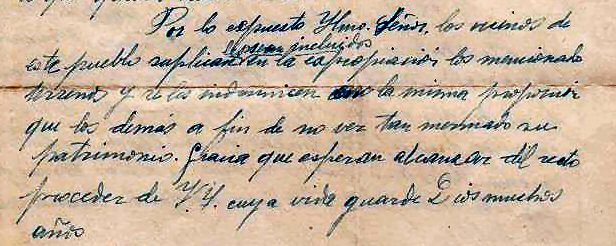 Por lo expuesto Ylmo. Señor, los vecinos de
sean incluidos
este pueblo suplican en la expropiación los mencionado
terrenos y se les indemnicen en la misma proporción
que los demás a fin de no ver tan mermado su
patrimonio. Gracia que esperan alcanzar del recto
proceder de Y.Y. cuya vida guarde Dios muchos
años